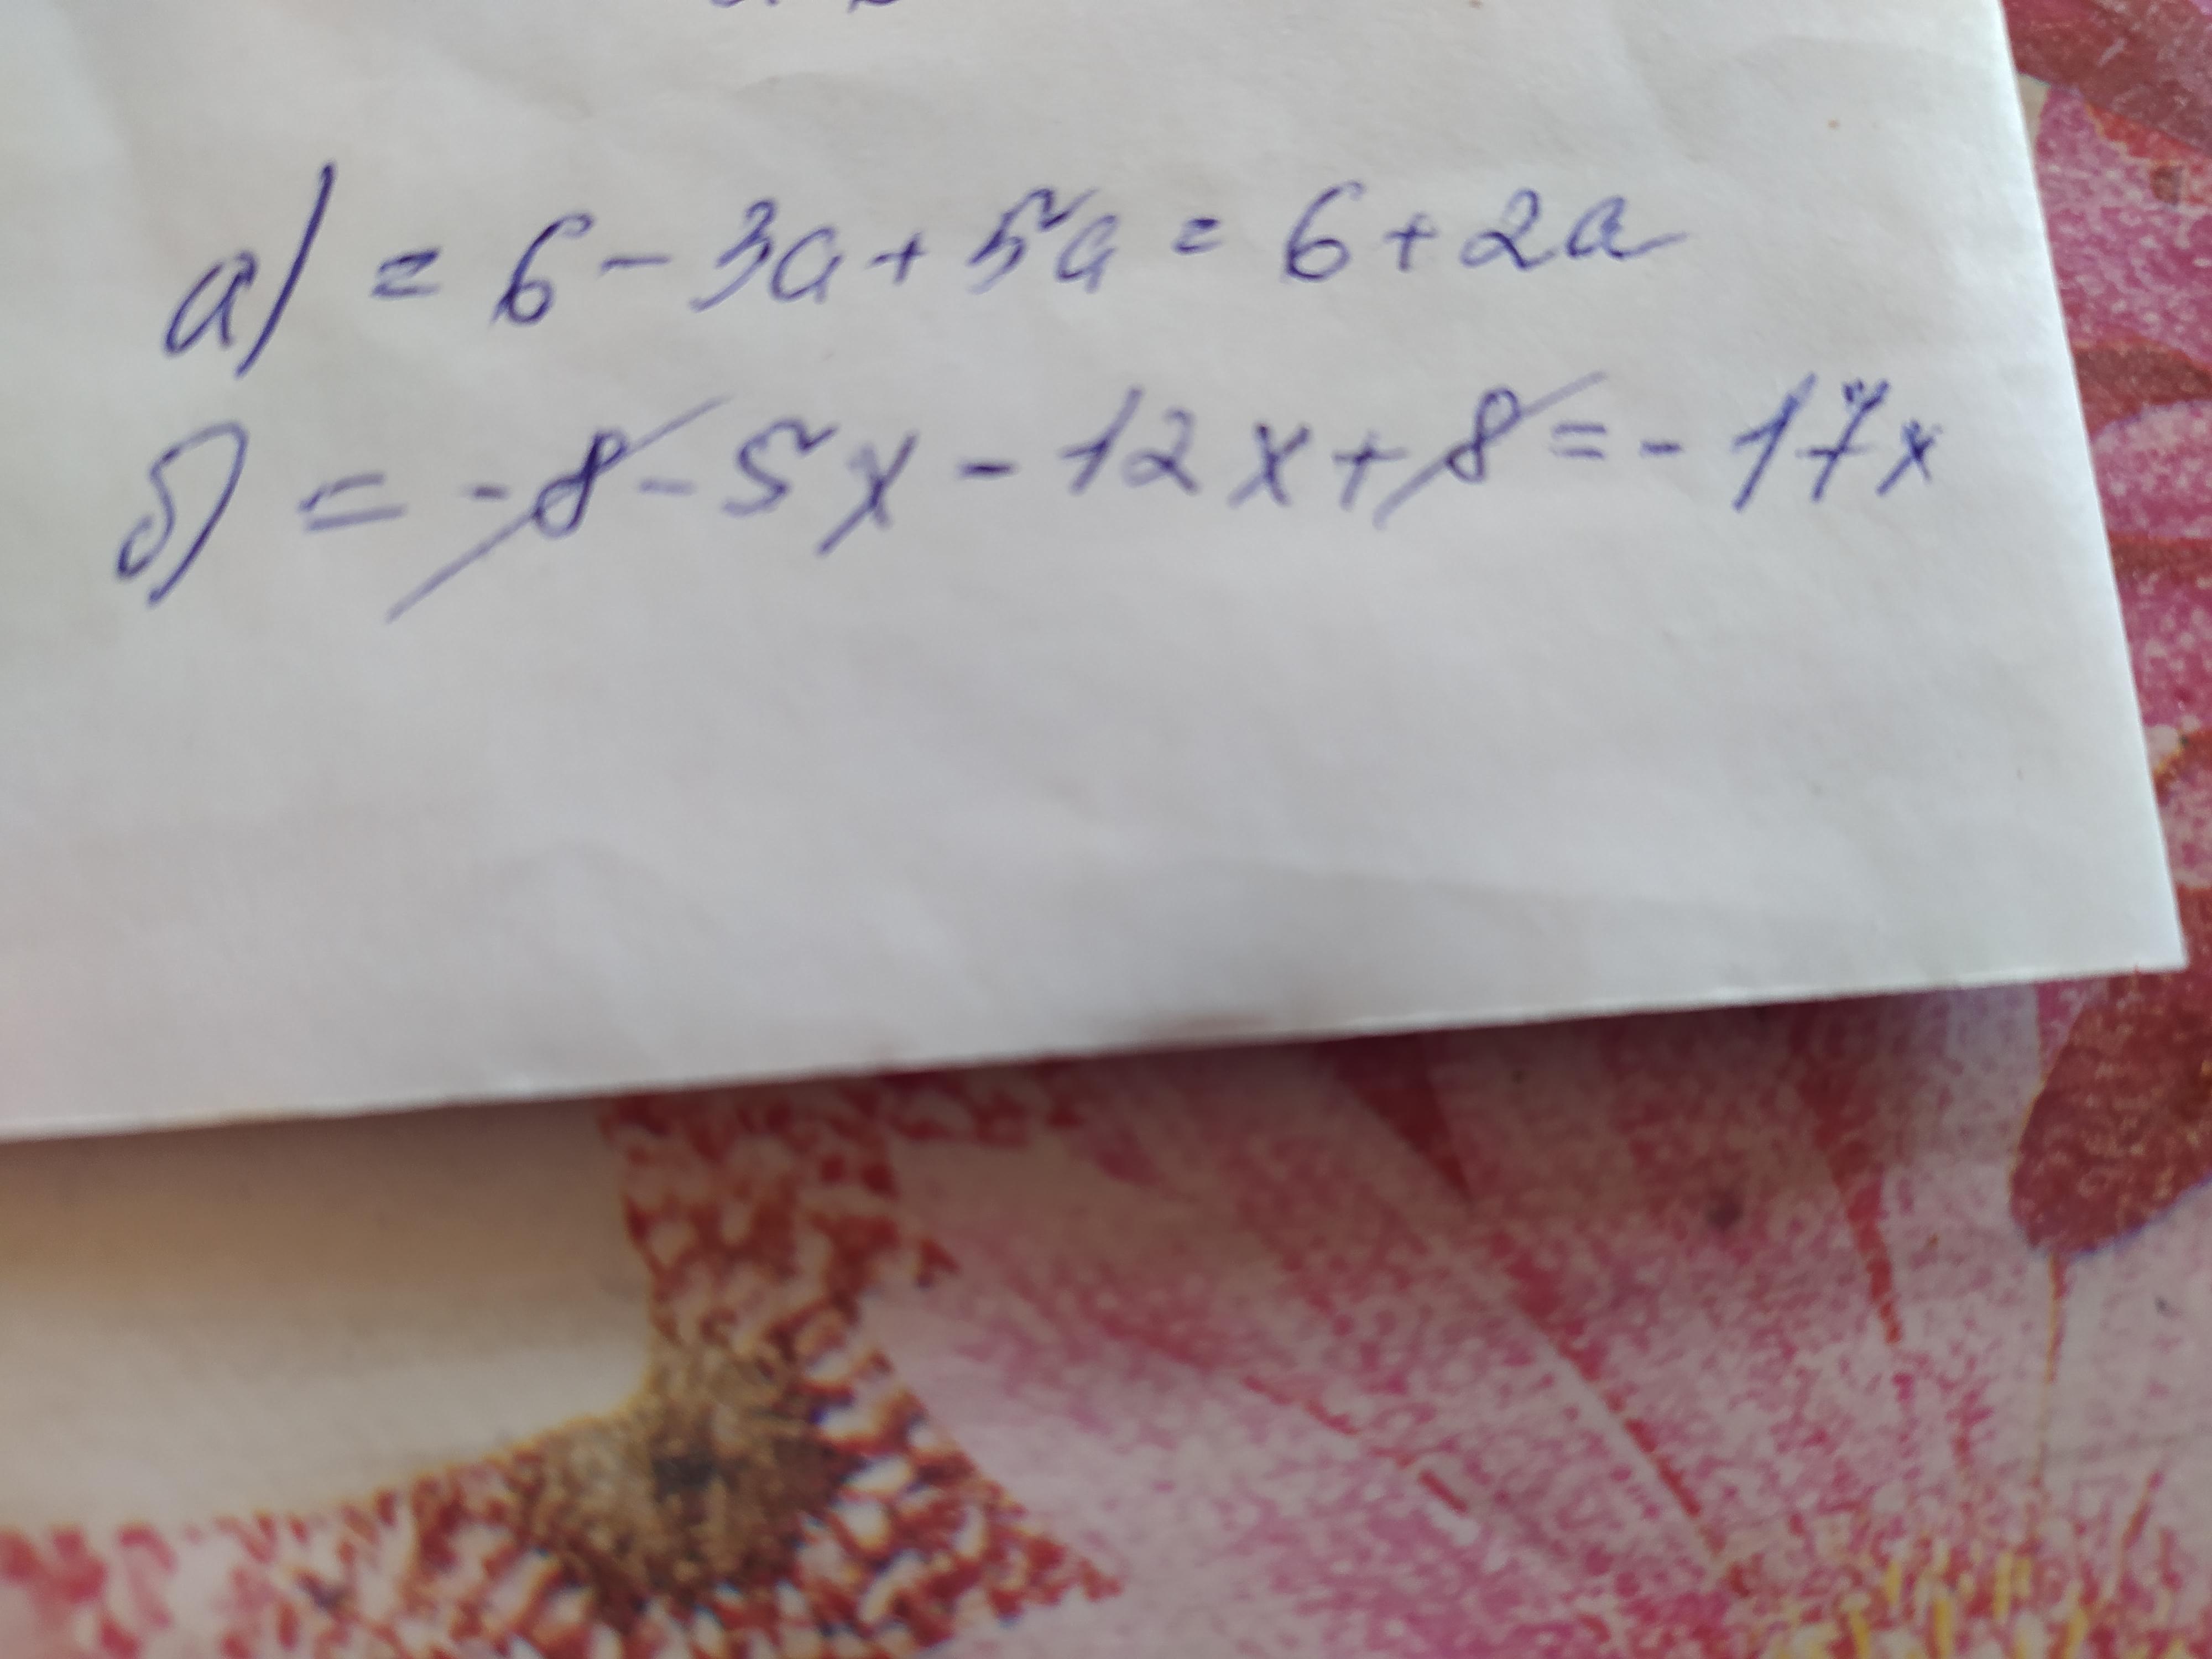 а) = 6 - 3a + 5a = 6 + 2a
б) = -8 - 5x - 12x + 8 = - 17x